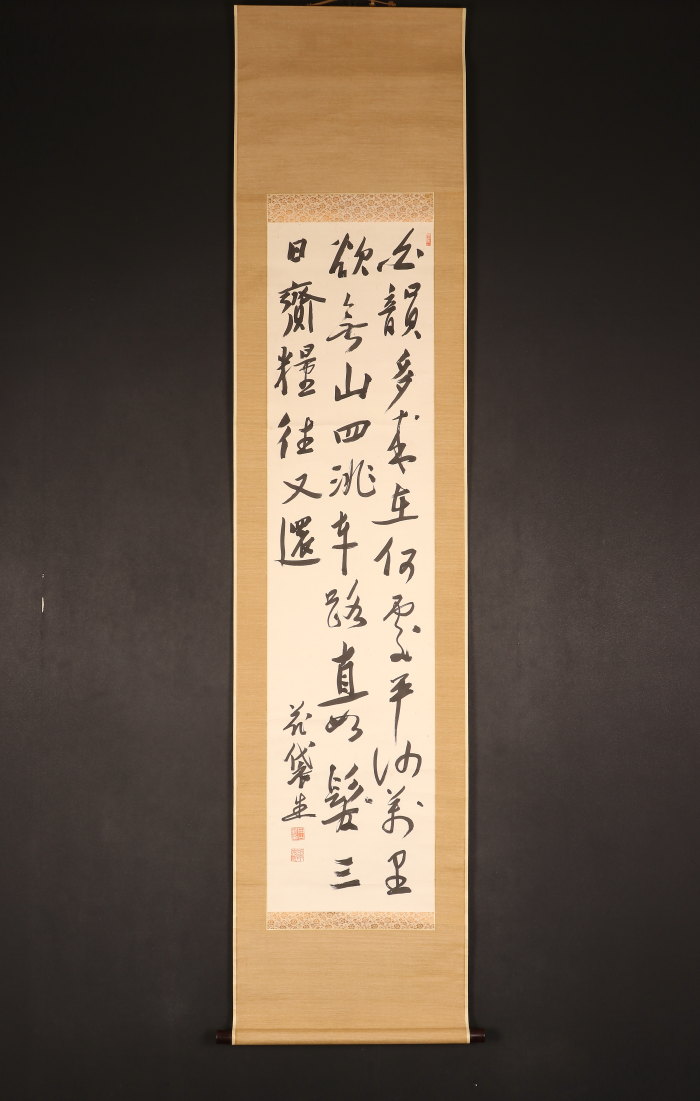 白韻多來在何處平沙萬里
欲無山四洮車路直如髮三
日齎糧往又還
花袋生